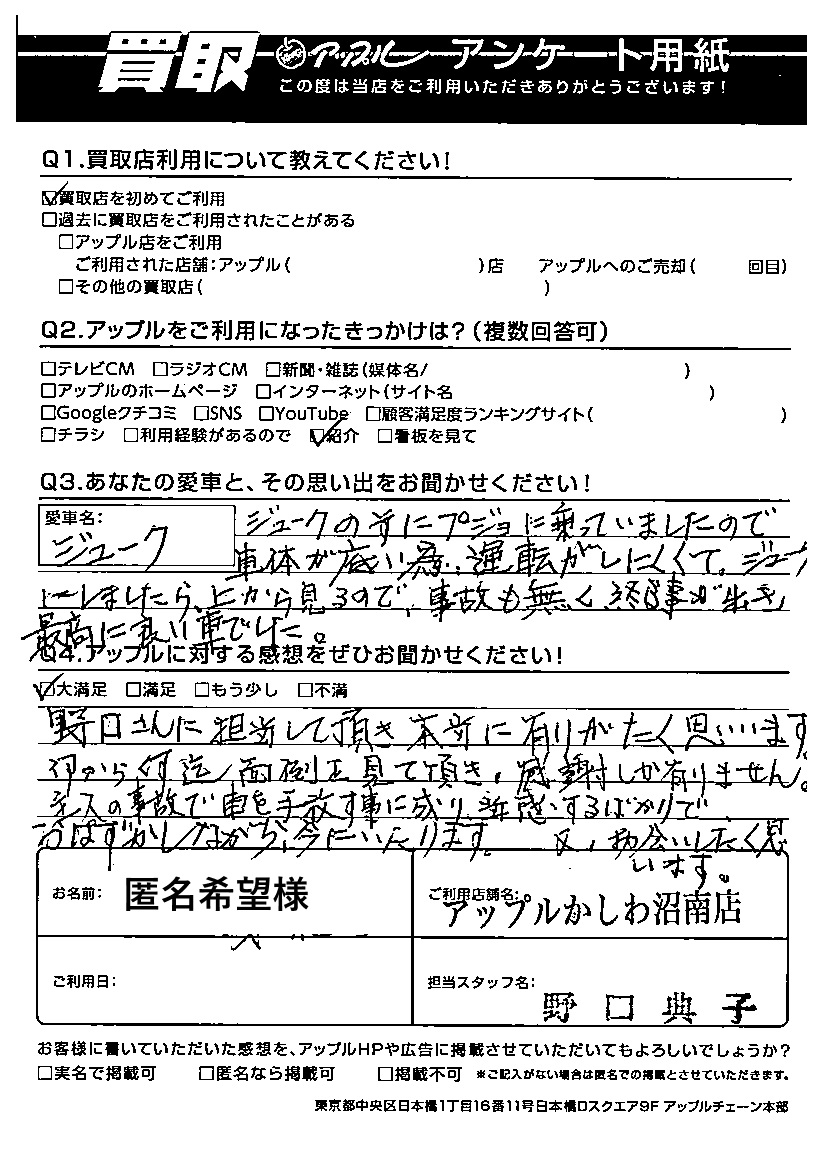 買取 アップル アンケート用紙
この度は当店をご利用いただきありがとうございます!
Q1.買取店利用について教えてください!
☑買取店を初めてご利用
□過去に買取店をご利用されたことがある
□アップル店をご利用
ご利用された店舗:アップル( )店 アップルへのご売却( 回目)
□その他の買取店( )
Q2.アップルをご利用になったきっかけは?(複数回答可)
□テレビCM □ラジオCM □新聞・雑誌(媒体名/ )
□アップルのホームページ □インターネット(サイト名 )
□Googleクチコミ □SNS □YouTube □顧客満足度ランキングサイト( )
□チラシ □利用経験があるので ☑紹介 □看板を見て
Q3.あなたの愛車と、その思い出をお聞かせください!
愛車名:
ジューク
ジュークの前にプジョに乗っていましたので
車体が底い為、運転がしにくくて。ジューク
にしましたら、上から見るので、事故も無く、終事が出き
最高に良い車でした。
Q4.アップルに対する感想をぜひお聞かせください!
☑大満足 □満足 □もう少し □不満
野口さんに担当して頂き本当に有りがたく思いいます
何から何迄、面倒を見て頂き、感謝しか有りません。
主人の事故で車を手放す事に成り、迷惑するばかりで、
はずかしながら、今にいたります。 又、お会いしたく思
います。
お名前: 匿名希望様
ご利用店舗名:
アップルかしわ沼南店
ご利用日:
担当スタッフ名:
野口典子
お客様に書いていただいた感想を、アップルHPや広告に掲載させていただいてもよろしいでしょうか?
□実名で掲載可 □匿名なら掲載可 □掲載不可 ※ご記入がない場合は匿名での掲載とさせていただきます。
東京都中央区日本橋1丁目16番11号日本橋Dスクエア9F アップルチェーン本部